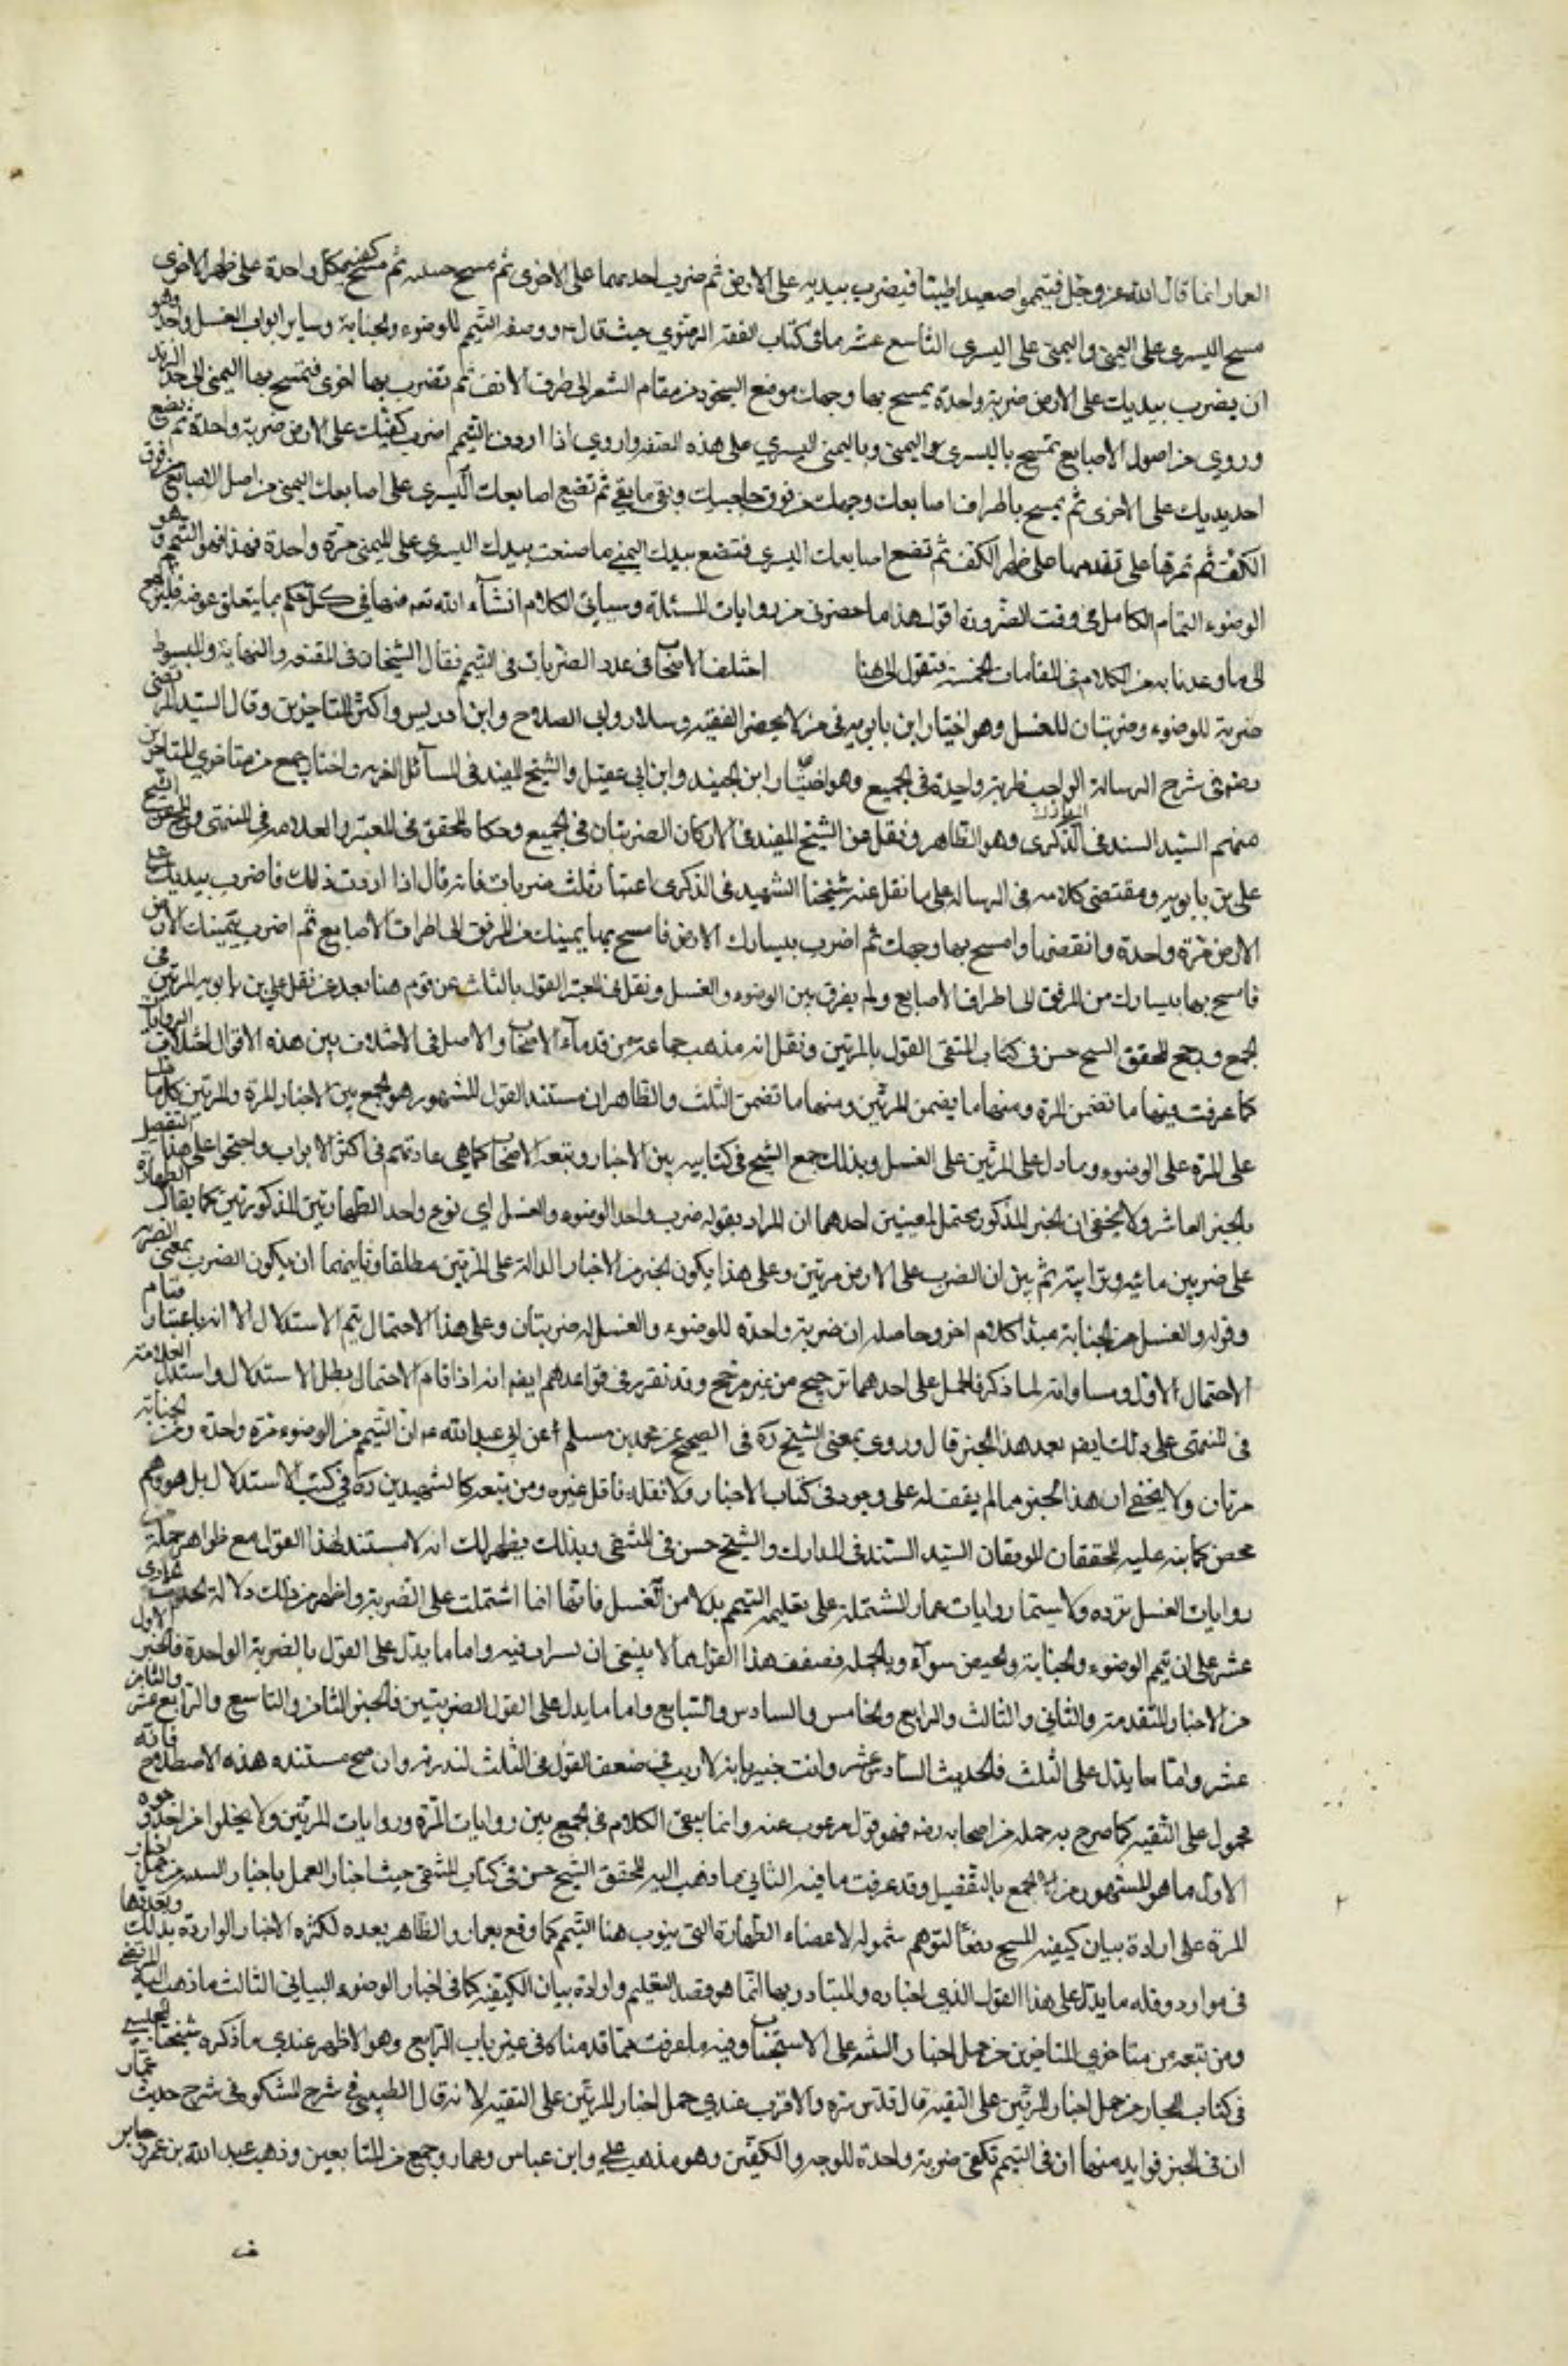 العمار انما قال الله عز وجل فتيمموا صعيدا طيبا فيضرب بيديه على الارض ثم ضرب احديهما على الاخرى ثم مسح ثم مسح كفيه كل واحدة على ظهر الاخرى
مسح اليسرى على اليمنى واليمنى على اليسرى التاسع عشر ما في كتاب الفقه الرضوي حيث قال ع وصفة التيمم للوضوء والجنابة وساير ابواب الغسل واحد وهو
ان يضرب بيديك على الارض ضربة واحدة يمسح بها وجهك موضع السجود من مقام الشعر الى طرف الانف ثم تضرب بها اخرى فتمسح بها اليمنى الى حد الزند
وروي من اصول الاصابع تمسح باليسرى اليمنى وباليمنى اليسرى على هذه الصفة واروي اذا اردت التيمم اضرب كفيك على الارض ضربة واحدة ثم تضع
احد يديك على الاخرى ثم يمسح باطراف اصابعك وجهك من فوق حاجبيك وبقي ما بقي ثم تضع اصابعك اليسرى على اصابعك اليمنى من اصل الاصابع من فوق
الكف ثم تمرها على مقدمها على ظهر الكف ثم تضع اصابعك اليسرى فتضع بيدك اليمنى ما صنعت بيدك اليسرى على اليمنى مرة واحدة فهذا هو التيمم وهو
الوضوء التمام الكامل في وقت الضرورة اقول هذا ما حضرني من روايات المسئلة وسياتي الكلام انشاء الله تعه منها في كل حكم بما يتعلق
الى ما وعدنا به من الكلام في المقامات الخمسة فنقول الى هنا اختلف الاصحاب في عدد الضربات في التيمم فقال الشيخان في المقنعه والنهاية والمبسوط
ضربة للوضوء وضربتان للغسل وهو اختيار ابن بابويه في من لا يحضر الفقيه وسلار وابي الصلاح وابن ادريس واكثر المتاخرين وقال السيد المرتضى
رضه في شرح الرسالة الواجب ضربة واحدة في الجميع وهو اختيار ابن الجنيد وابن ابي عقيل والشيخ المفيد في المسائل الغريه واختاره جمع من متاخري المتاخرين
منهم السيد السند في الذكرى وهو الظاهر ونقل عن الشيخ المفيد في الاركان الضربتان في الجميع وحكاه المحقق في المعتبر والعلامه في المنتهى عن الشيخ
على بن بابويه ومقتضى كلامه في الرساله على ما نقل عنه شيخنا الشهيد في الذكرى اعتبار ثلث ضربات فانه قال اذا اردت ذلك فاضرب بيديك على
الارض مرة واحدة وانفضهما وامسح بهما وجهك ثم اضرب بيسارك الارض فامسح بها يمينك من المرفق الى اطراف الاصابع ثم اضرب بيمينك الارض
فامسح بها يسارك من المرفق الى اطراف الاصابع ولم يفرق بين الوضوء والغسل ونقل في المعتبر القول بالثلث عن قوم منا بعد نقل علي بن بابويه المرتين في
الجمع ورجح المحقق الشيخ حسن في كتاب المنتقى القول بالمرتين ونقل انه مذهب جماعة من قدماء الاصحاب والاصل في الاختلاف بين هذه الاقوال اختلاف الروايات
كما عرفت فمنها ما تضمن المرة ومنها ما يضمن المرتين ومنها ما تضمن الثلث والظاهر ان مستند القول المشهور هو الجمع بين الاخبار المرة والمرتين بحمل ما دل
على المرة على الوضوء وما دل على المرتين على الغسل وبذلك جمع الشيخ في كتابيه بين الاخبار وتبعه الاصحاب كما هي عادتهم في اكثر الابواب واحتجوا على هذا التفصيل
بالخبر العاشر ولا يخفى ان الخبر المذكور يحتمل لمعنيين احدهما ان المراد بقوله ضرب واحد الوضوء والغسل اي نوع واحد الطهارتين المذكورتين كما يقال الطهارة
على ضربين مائيه وترابيته ثم بين ان الضرب على الارض مرتين وعلى هذا يكون الخبر من الاخبار الدالة على المرتين مطلقا وثانيهما ان يكون الضرب بمعنى الضربة
وقوله والغسل من الجنابة مبتدا كلام اخر وحاصله ان ضربة واحدة للوضوء والغسل له ضربتان وعلى هذا الاحتمال يتم الاستدلال الا انه باعتبار قيام
الاحتمال الاول ومساواته لما ذكر فالحمل على احدهما ترجيح من غير مرجح وقد تقرر في قواعدهم ايضا انه اذا قام الاحتمال بطل الاستدلال واستدل العلامة
في المنتهى على ذلك ايضا بعد هذا الخبر قال وروى يعني الشيخ ره في الصحيح عن محمد بن مسلم عن ابي عبد الله ع ان التيمم من الوضوء مرة واحدة ومن الجنابة
مرتان ولا يخفى ان هذا الخبر مما لم يقف له على وجود في كتاب الاخبار ولا نقله ناقل غيره ومن تبعه كالشهيدين ره في كتب الاستدلال بل هو وهم
محض كما نبه عليه المحققان المدققان السيد السند في المدارك والشيخ حسن في المنتقى وبذلك يظهر لك انه لا مستند لهذا القول مع ظواهر جملة من
روايات الغسل ترده ولا سيما روايات عمار المشتملة على تعليمه التيمم بدلا من الغسل فانها انما اشتملت على الضربة واظهر من ذلك دلالة الحديث
عشر على ان تيمم الوضوء والجنابة والحيض سواء وبالجمله فضعف هذا القول مما لا ينبغي ان فيه واما ما يدل على القول بالضربة الواحدة فالخبر الاول
من الاخبار المتقدمة والثاني والثالث والرابع والخامس والسادس والسابع واما ما يدل على القول الضربتين فالخبر الثامن والتاسع والرابع عشر والثامن
عشر واما ما يدل على الثلث فالحديث السادس عشر وانت خبير بانه لا ريب في ضعف القول في الثلث لندرته وان صح مستنده هذه الاصطلاح فانه
محمول على التقيه كما صرح به جمله من اصحابنا رضه فهو قول مرغوب عنه وانما يبقى الكلام في الجمع بين روايات المرة وروايات المرتين ولا يخلوا من احد وجوه
الاول ما هو المشهور من الجمع بالتفصيل وقد عرفت ما فيه الثاني ما ذهب اليه المحقق الشيخ حسن في كتاب المنتقى حيث اختار العمل باخبار من حمل اخبار
المرة على ارادة بيان كيفية المسح دفعا لتوهم شموله لاعضاء الطهارة التي ينوب عنها التيمم كما وقع بعمار والظاهر بعده لكثرة الاخبار الواردة بذلك وبعدها
في موارد وقله ما يدل على هذا القول الذي اختاره والمتبادر بها انما هو قصد التعليم وارادة بيان الكيفية كما في اخبار الوضوء البياني الثالث ما ذهب اليه المرتضى
ومن تبعه من متاخري المتاخرين من حمل اخبار على الاستحباب وفيه ما عرفت مما قدمناه في غير باب الرابع وهو الاظهر عندي ما ذكره شيخنا المجلسي
في كتاب البحار من حمل اخبار المرتين على التقية قال قدس سره والاقرب عندي حمل اخبار المرتين على التقيه لانه قال الطيبي في شرح المشكوة في شرح حديث عمار
ان في الخبر فوايد منها ان في التيمم تكفي ضربة واحدة للوجه والكفين وهو مذهب علي وابن عباس وعمار وجمع من التابعين وذهب عبد الله بن عمر وجابر